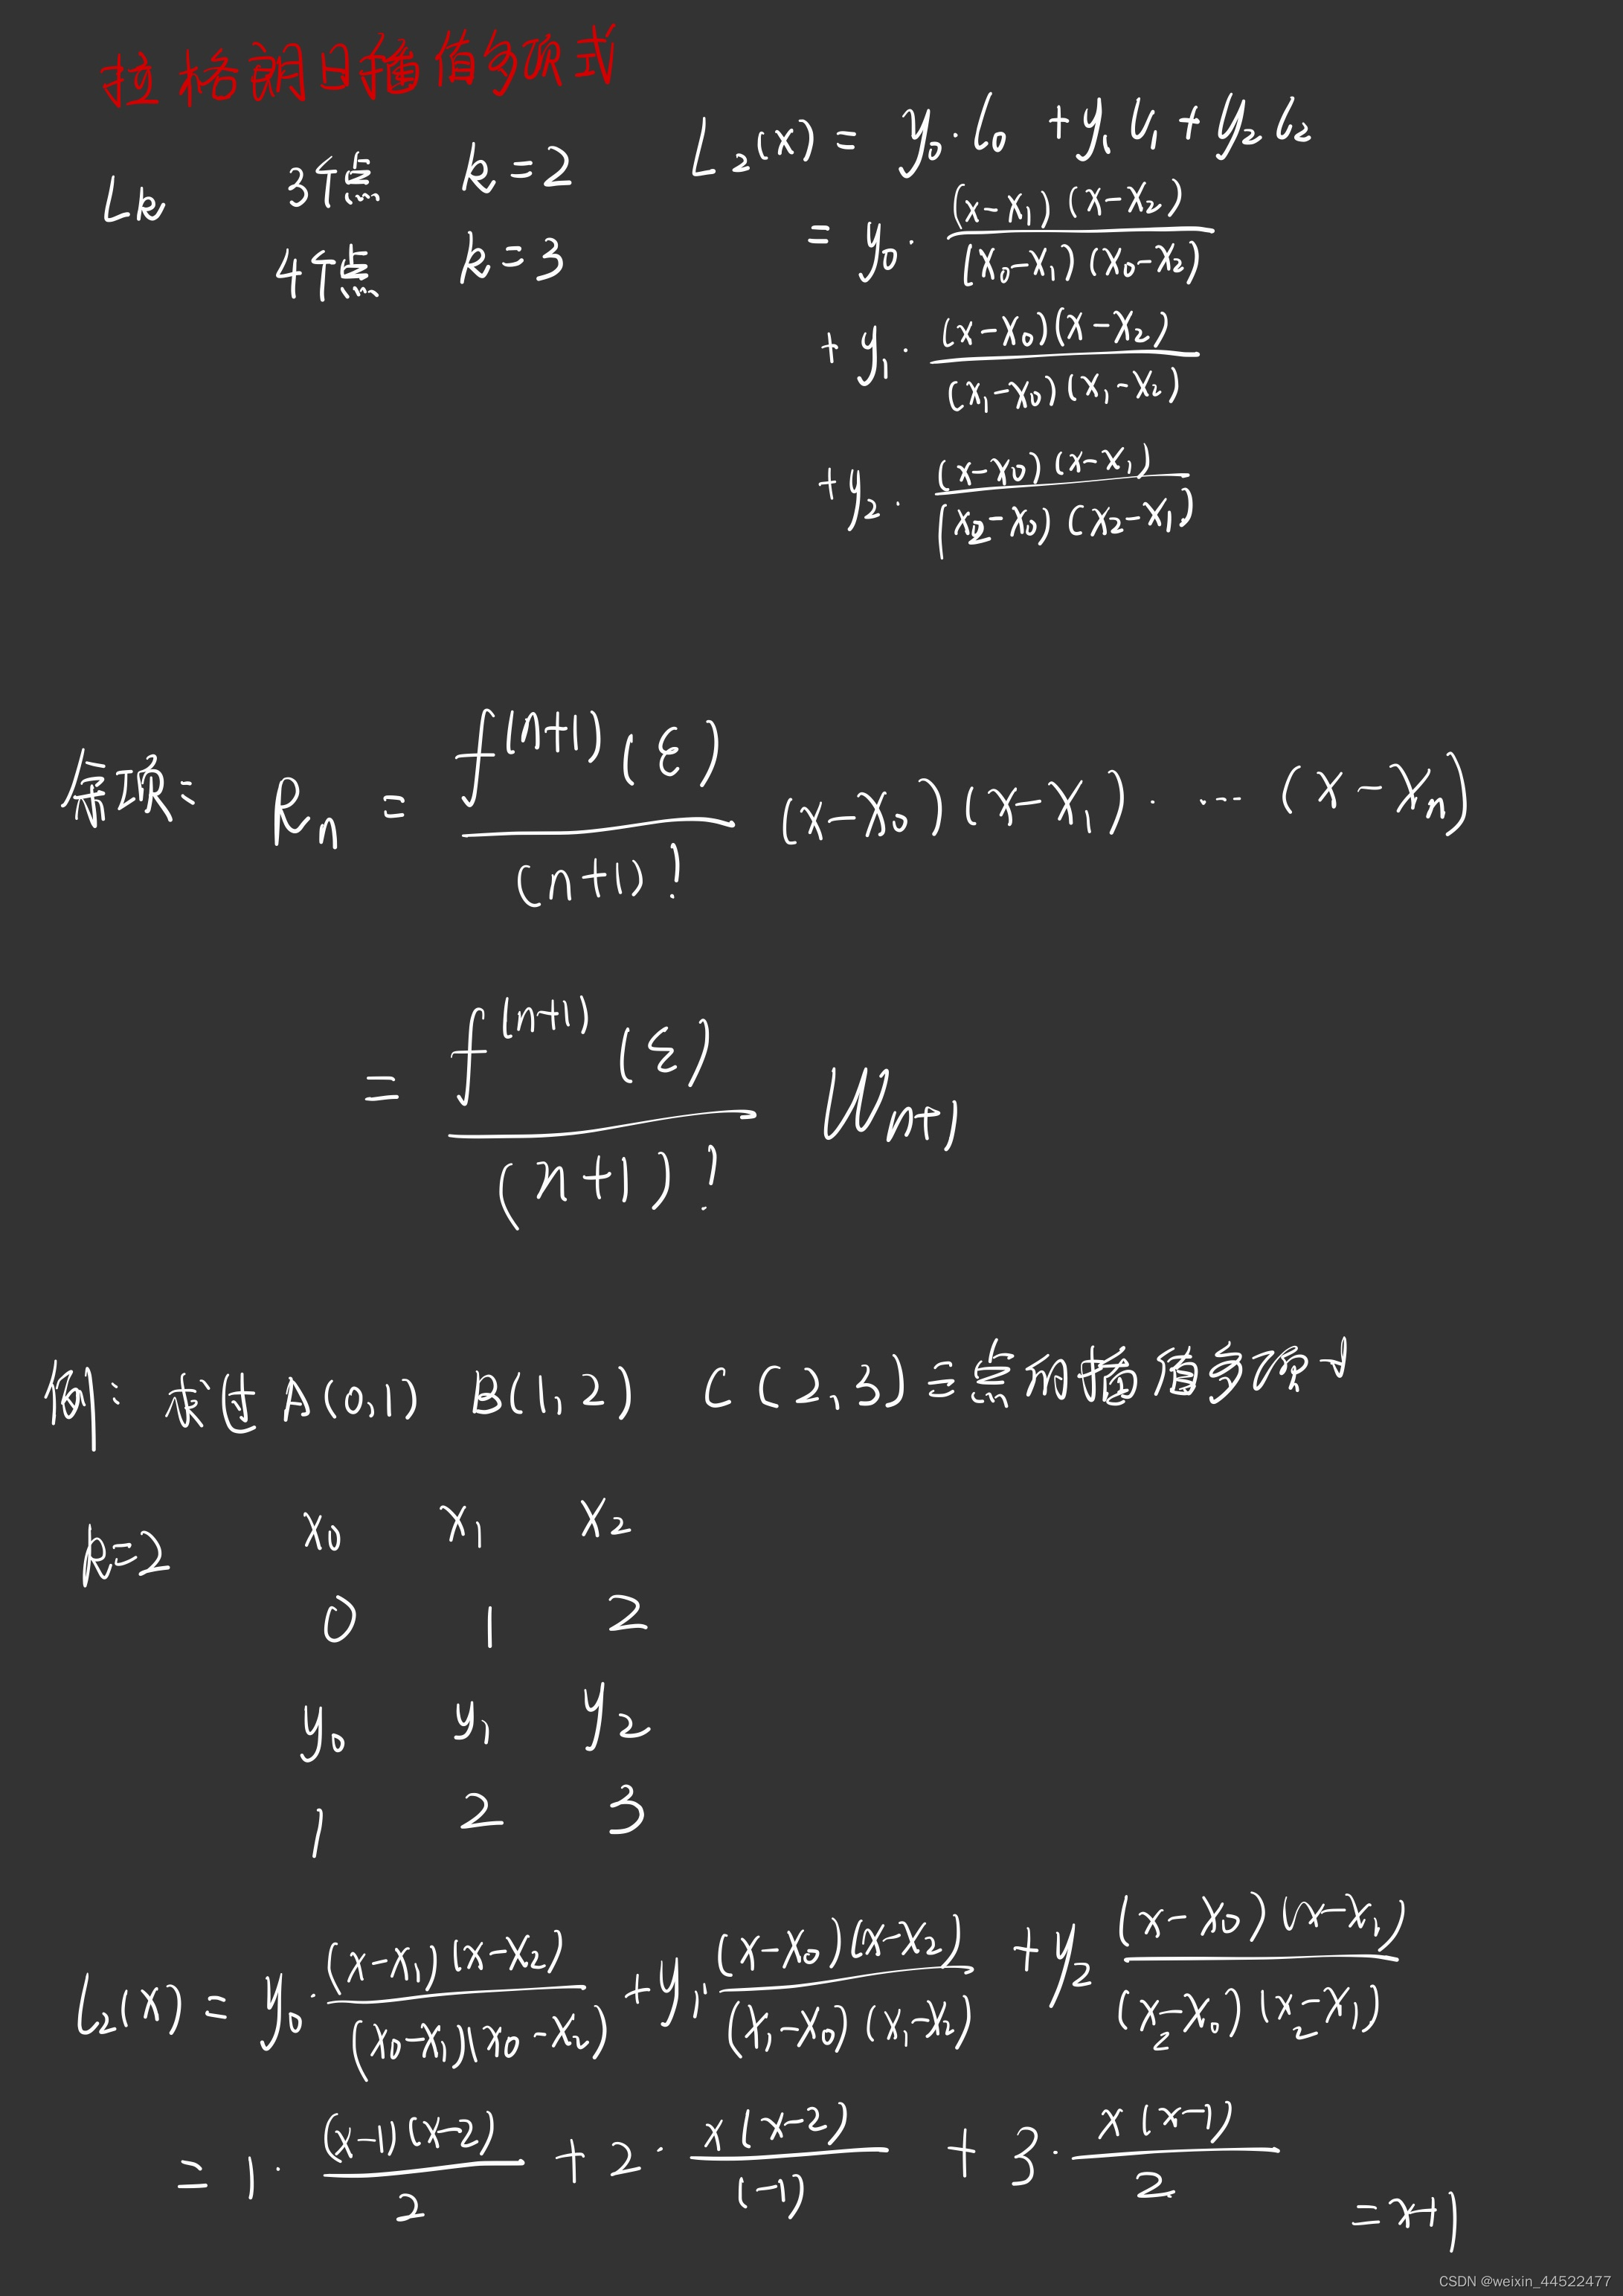 拉格朗日插值多项式
Lk 3个点 k=2
4个点 k=3
L₂(x) = y₀·l₀ + y₁l₁ + y₂l₂
= y₀· (x-x₁)(x-x₂) / (x₀-x₁)(x₀-x₂)
+ y₁· (x-x₀)(x-x₂) / (x₁-x₀)(x₁-x₂)
+ y₂· (x-x₀)(x-x₁) / (x₂-x₀)(x₂-x₁)
余项: Rn = f^(n+1)(ξ) / (n+1)! (x-x₀)(x-x₁)· ··· (x-xn)
= f^(n+1)(ξ) / (n+1)! Wn+1
例: 求过A(0,1) B(1,2) C(2,3)三点的插值多项式
k=2 x₀ x₁ x₂
0 1 2
y₀ y₁ y₂
1 2 3
L₂(x) = y₀· (x-x₁)(x-x₂) / (x₀-x₁)(x₀-x₂) + y₁· (x-x₀)(x-x₂) / (x₁-x₀)(x₁-x₂) + y₂ (x-x₀)(x-x₁) / (x₂-x₀)(x₂-x₁)
= 1· (x-1)(x-2) / 2 + 2· x(x-2) / (-1) + 3· x(x-1) / 2
= x+1
CSDN @weixin_44522477